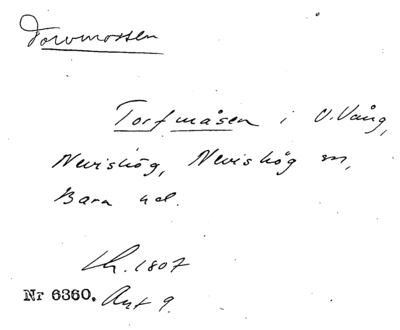 Torvmossen
Torfmåsen i V. Vång,
Nevishög, Nevishög sn,
Bara hd.
Lh. 1807
Nr 6360. Akt 9.